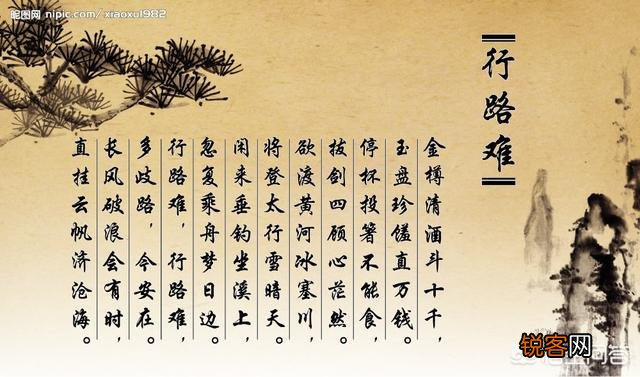 昵图网 nipic.com/xiaoxu1982
行路难
金樽清酒斗十千，
玉盘珍馐直万钱。
停杯投箸不能食，
拔剑四顾心茫然。
欲渡黄河冰塞川，
将登太行雪暗天。
闲来垂钓坐溪上，
忽复乘舟梦日边。
行路难，行路难，
多歧路，今安在。
长风破浪会有时，
直挂云帆济沧海。
锐客网